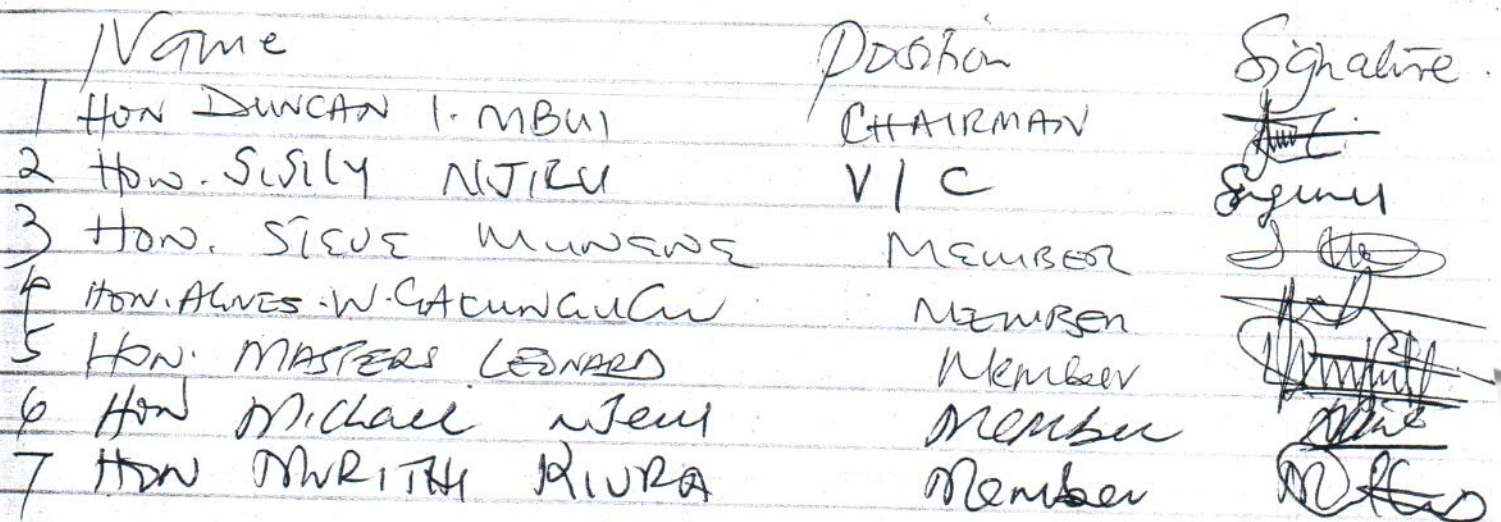 Name Position Signature.
1 HON DUNCAN I. MBUI CHAIRMAN
2 HON. SISILY NJIRU V/C
3 HON. STEVE MUNENE MEMBER
4 HON. AGNES. W. GACUNGUGU MEMBER
5 HON. MASTERS LEONARD Member
6 HON Michael NJeru Member
7 HON MURITHI KIURA Member